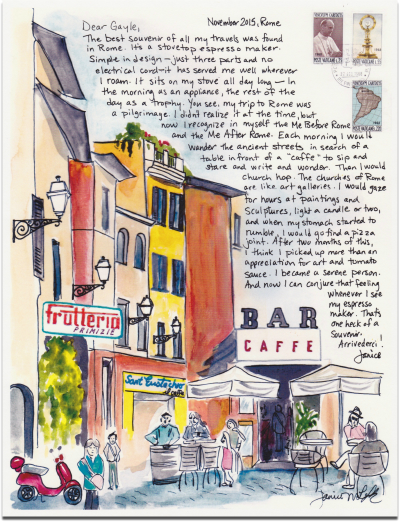 November 2015, Rome
Dear Gayle,
The best souvenir of all my travels was found
in Rome. It's a stovetop espresso maker.
Simple in design - just three parts and no
electrical cord - it has served me well wherever
I roam. It sits on my stove all day long - in
the morning as an appliance, the rest of the
day as a trophy. You see, my trip to Rome was
a pilgrimage. I didn't realize it at the time, but
now I recognize in myself the Me Before Rome
and the Me After Rome. Each morning I would
wander the ancient streets in search of a
table in front of a "caffe" to sip and
stare and write and wonder. Then I would
church hop. The churches of Rome
are like art galleries. I would gaze
for hours at paintings and
sculptures, light a candle or two,
and when my stomach started to
rumble, I would go find a pizza
joint. After two months of this,
I think I picked up more than an
appreciation for art and tomato
sauce. I became a serene person.
And now I can conjure that feeling
whenever I see
my espresso
maker. That's
one heck of a
souvenir.
Arrivederci!
Janice
POSTE VATICANE
POSTE VATICANE
POSTE VATICANE
frutteria
PRIMIZIE
BAR
CAFFE
Sant' Eustachio
il caffè